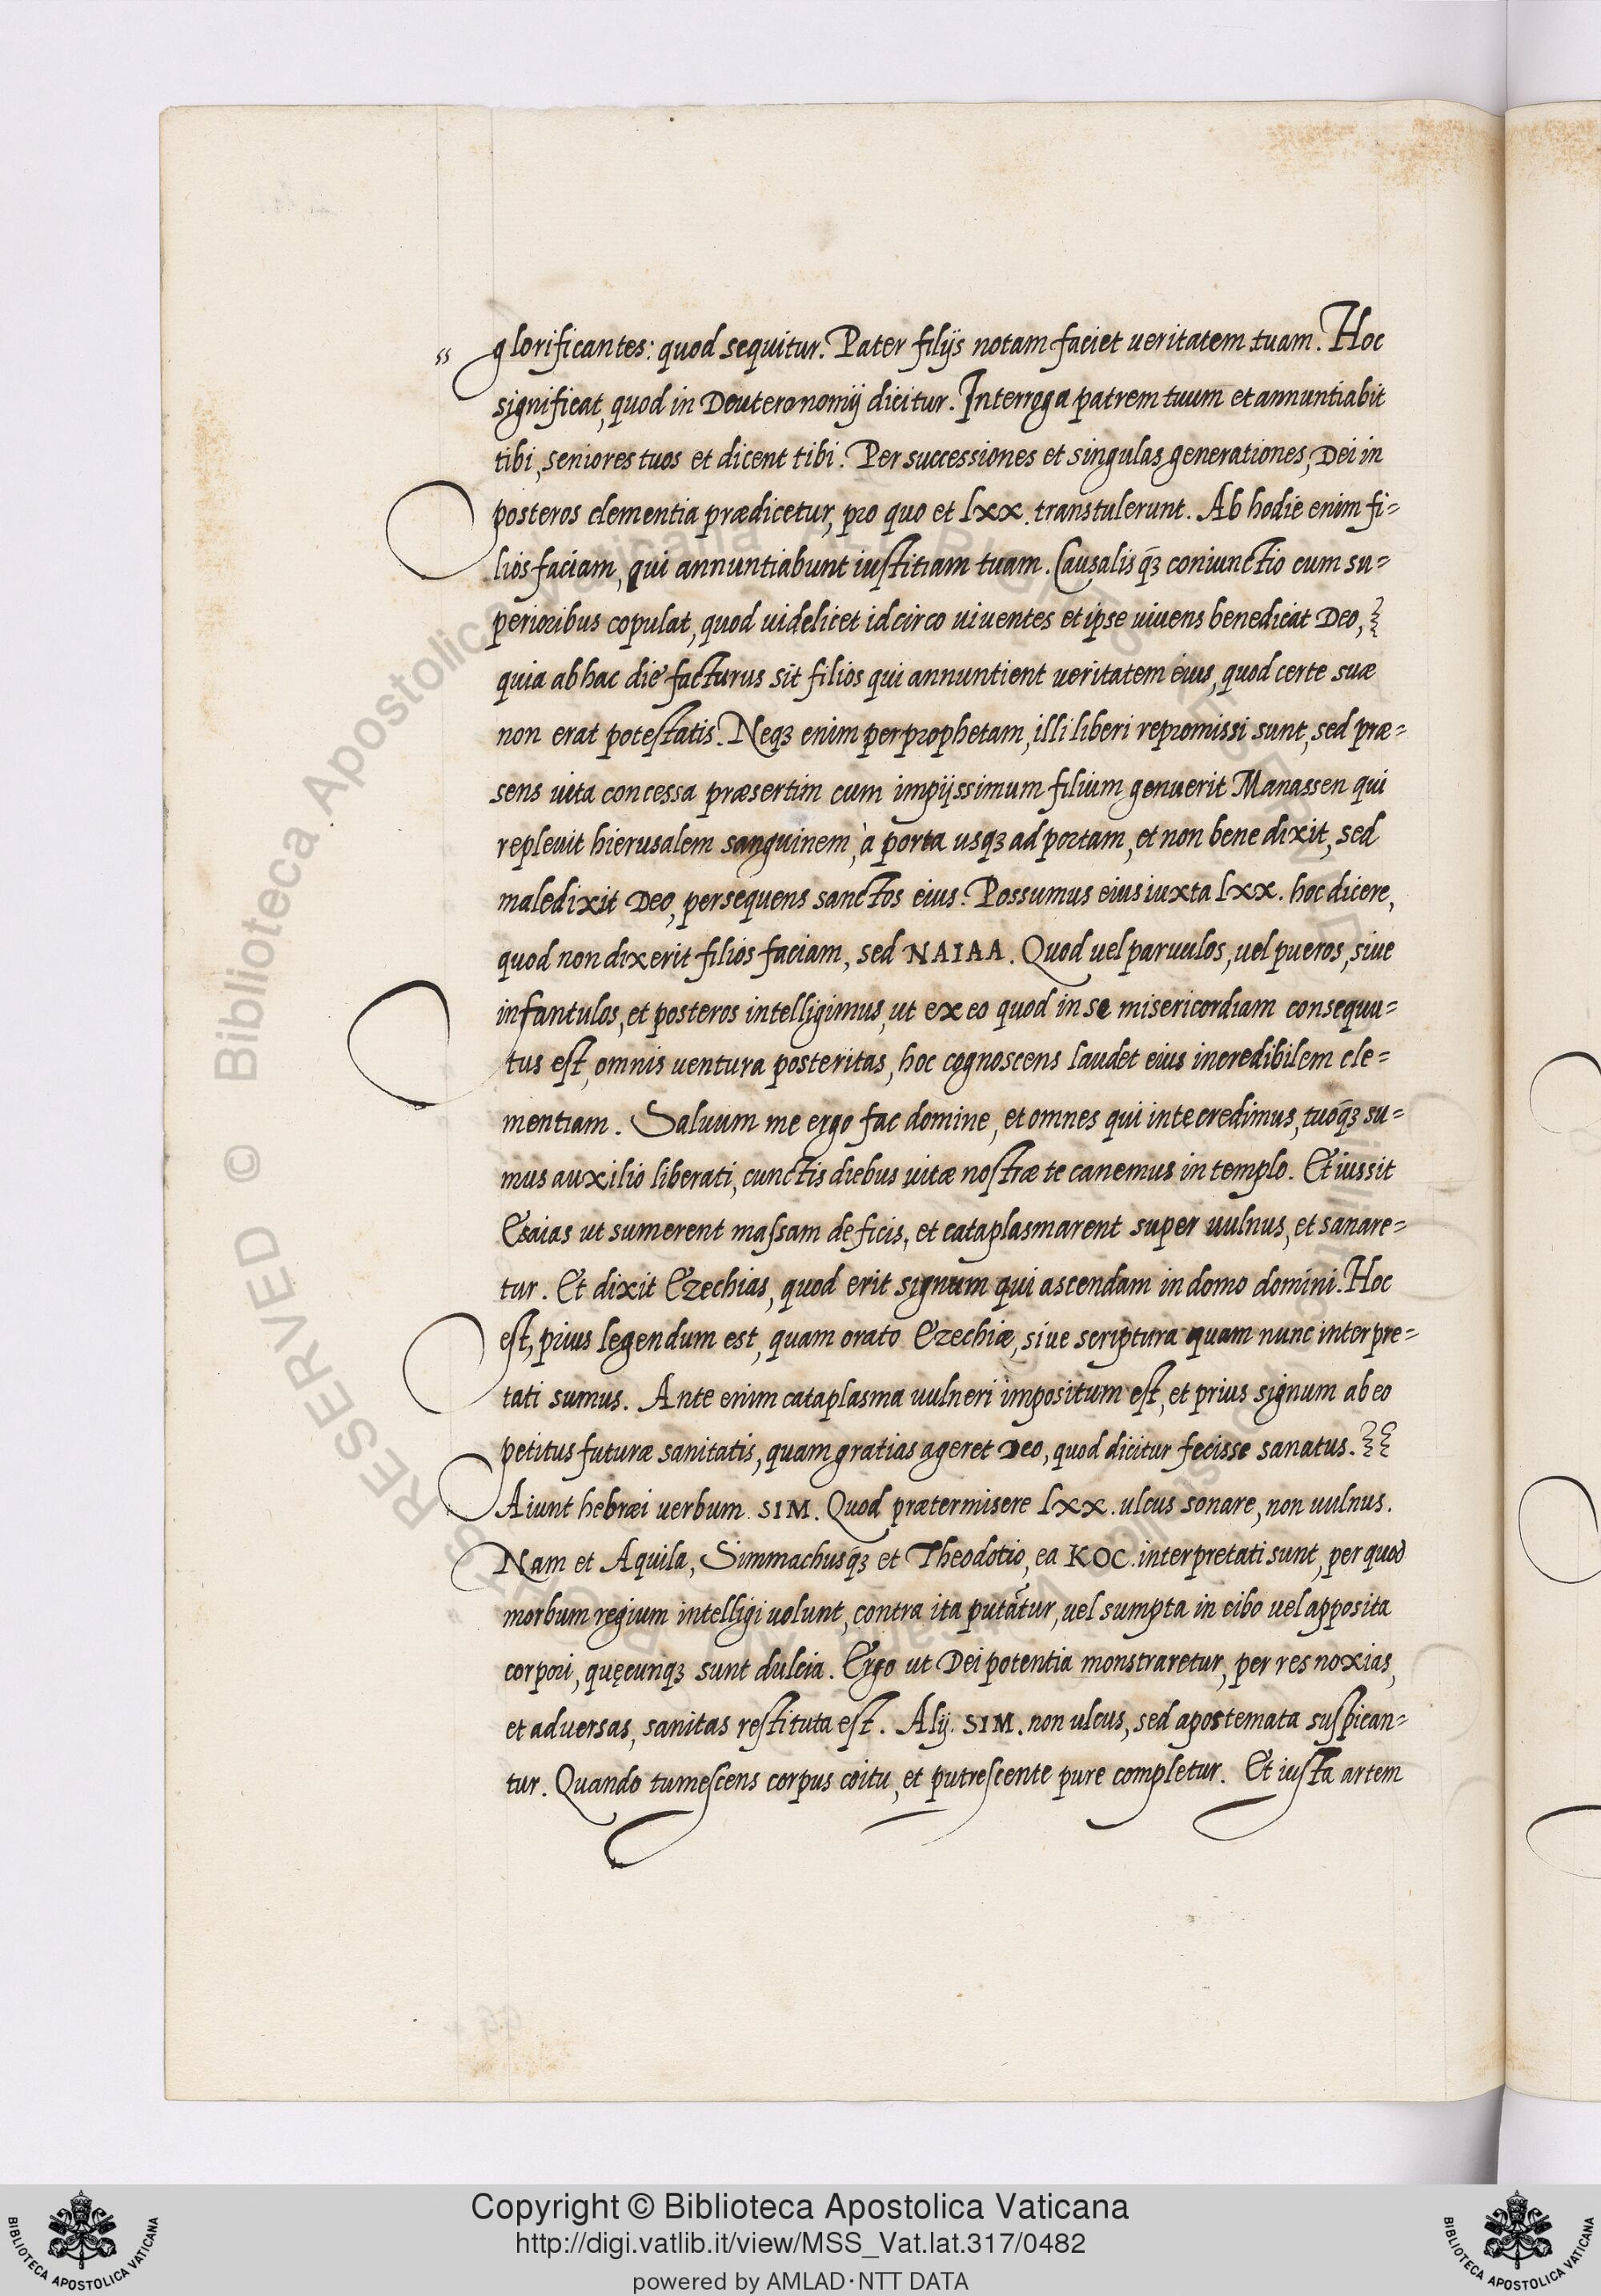 glorificantes: quod sequitur. Pater filijs notam faciet ueritatem tuam. Hoc
significat, quod in Deuteronomij dicitur. Interroga patrem tuum et annuntiabit
tibi, seniores tuos et dicent tibi. Per successiones et singulas generationes, Dei in
posteros clementia prædicetur, pro quo et lxx. transtulerunt. Ab hodie enim fi=
lios faciam, qui annuntiabunt iustitiam tuam. Causalis q̄ꝫ coniunctio cum su=
perioribus copulat, quod uidelicet idcirco uiuentes et ipse uiuens benedicat Deo,
quia ab hac die facturus sit filios qui annuntient ueritatem eius, quod certe suæ
non erat potestatis. Neqꝫ enim per prophetam, illi liberi repromissi sunt, sed præ=
sens uita concessa præsertim cum impijssimum filium genuerit Manassen qui
repleuit hierusalem sanguinem, à porta usqꝫ ad portam, et non benedixit, sed
maledixit Deo, persequens sanctos eius. Possumus eius iuxta lxx. hoc dicere,
quod non dixerit filios faciam, sed NAIAA. Quod uel paruulos, uel pueros, siue
infantulos, et posteros intelligimus, ut ex eo quod in se misericordiam consequu=
tus est, omnis uentura posteritas, hoc cognoscens laudet eius incredibilem cle=
mentiam. Saluum me ergo fac domine, et omnes qui in te credimus, tuoq̄ꝫ su=
mus auxilio liberati, cunctis diebus uitæ nostræ te canemus in templo. Et iussit
Esaias ut sumerent massam de ficis, et cataplasmarent super uulnus, et sanare=
tur. Et dixit Ezechias, quod erit signum qui ascendam in domo domini. Hoc
est, prius legendum est, quam orato Ezechiæ, siue scriptura quam nunc interpre=
tati sumus. Ante enim cataplasma uulneri impositum est, et prius signum ab eo
petitus futuræ sanitatis, quam gratias ageret Deo, quod dicitur fecisse sanatus.
Aiunt hebræi verbum SIM. Quod prætermisere lxx. ulcus sonare, non uulnus.
Nam et Aquila, Simmachusq̄ꝫ et Theodotio, ea KOC. interpretati sunt, per quod
morbum regium intelligi uolunt, contra ita putātur, uel sumpta in cibo uel apposita
corpori, quęcunqꝫ sunt dulcia. Ergo ut Dei potentia monstraretur, per res noxias,
et aduersas, sanitas restituta est. Alij. SIM. non ulcus, sed apostemata suspican=
tur. Quando tumescens corpus coitu, et putrescente pure completur. Et iusta artem
Copyright © Biblioteca Apostolica Vaticana
http://digi.vatlib.it/view/MSS_Vat.lat.317/0482
powered by AMLAD·NTT DATA